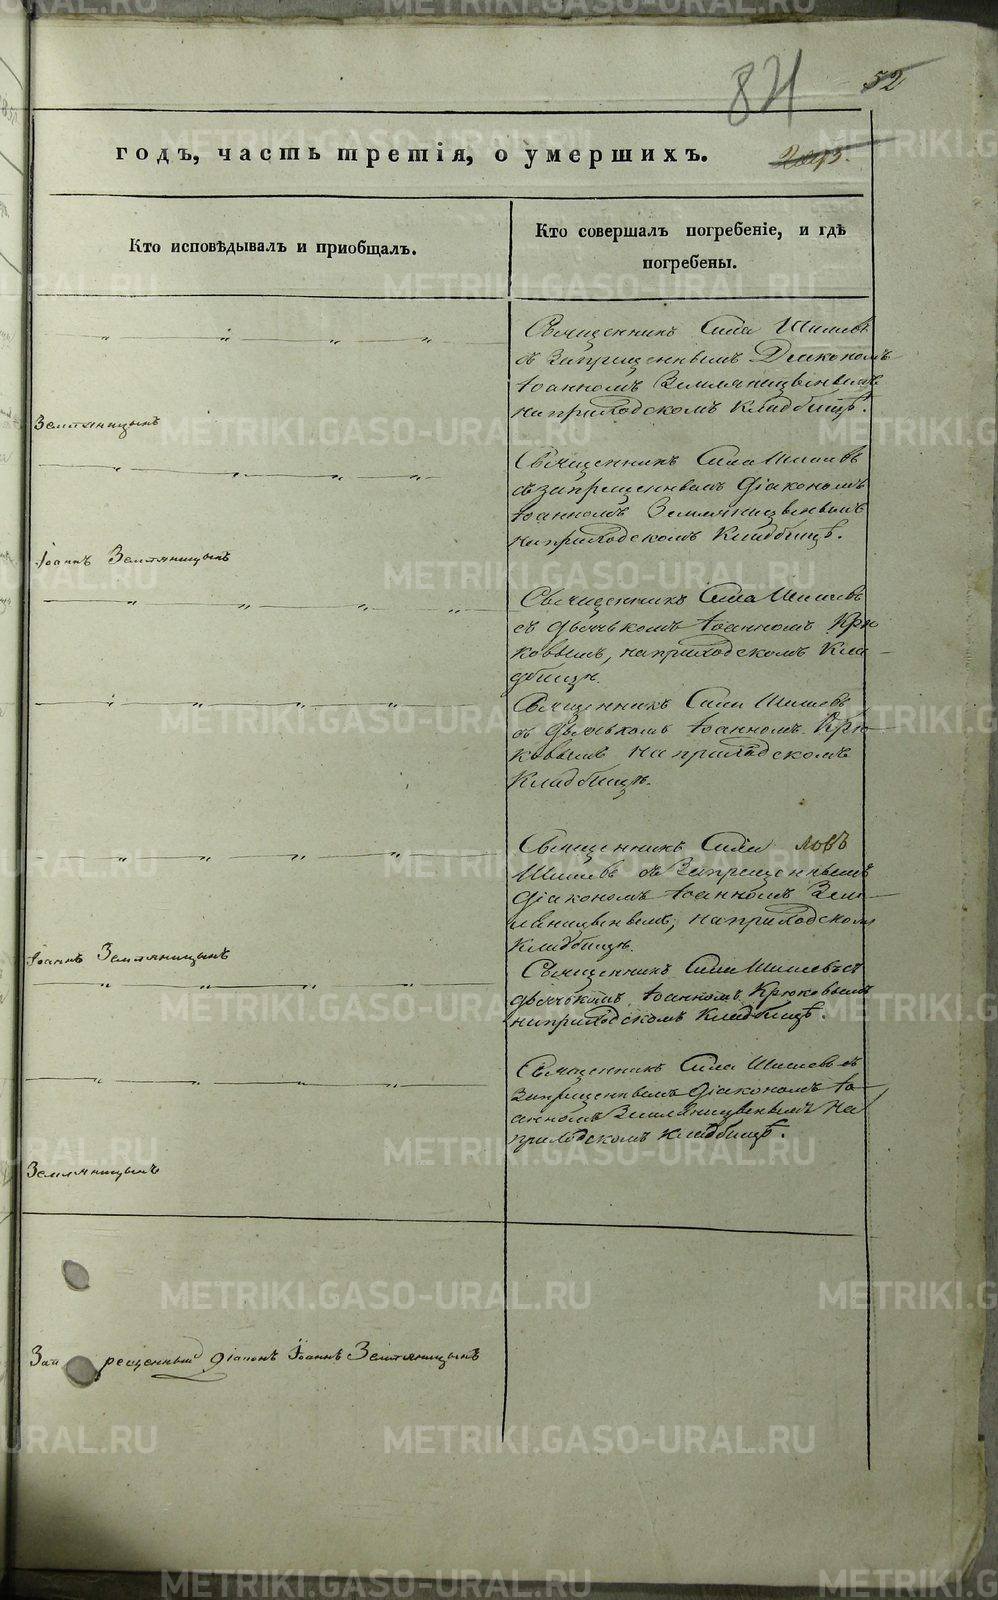 821 52
годъ, часть третія, о умершихъ.
Кто исповѣдывалъ и приобщалъ.
Кто совершалъ погребеніе, и гдѣ
погребены.
Священникъ Сила Шишевъ
съ Запрещеннымъ Діакономъ
Іоанномъ Земляницынымъ
на приходскомъ Кладбищѣ.
Земляницынъ
Священникъ Сила Шишевъ
съ запрещеннымъ діакономъ
Іоанномъ Земляницынымъ
на приходскомъ Кладбищѣ.
Іоаннъ Земляницынъ
Священникъ Сила Шишевъ
съ дьячькомъ Іоанномъ Крю
ковымъ, на приходскомъ Кла-
дбищѣ.
Священникъ Сила Шишевъ
съ дьячькомъ Іоанномъ Крю-
ковымъ на приходскомъ
Кладбищѣ.
Священникъ Сила ловъ
Шишевъ съ Запрещеннымъ
діакономъ Іоанномъ Зем-
ляницынымъ, на приходскомъ
Кладбищѣ.
Іоаннъ Земляницынъ
Священникъ Сила Шишевъ съ
дьячькомъ Іоанномъ Крюковымъ
на приходскомъ Кладбищѣ.
Священникъ Сила Шишевъ съ
запрещеннымъ діакономъ Іо-
анномъ Земляницынымъ на
приходскомъ кладбищѣ.
Земляницынъ
Запрещенный діаконъ Іоаннъ Земляницынъ
METRIKI.GASO-URAL.RU